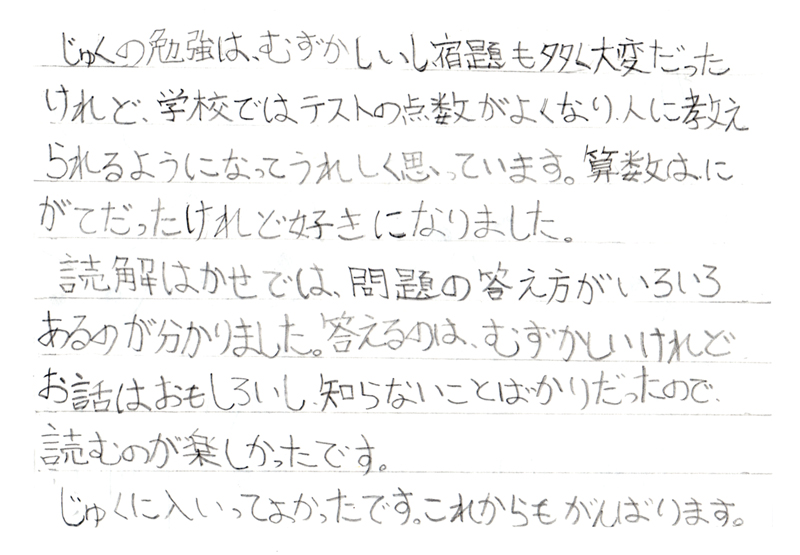 じゅくの勉強は、むずかしいし宿題も多く大変だった
けれど、学校ではテストの点数がよくなり、人に教え
られるようになってうれしく思っています。算数は、に
がてだったけれど好きになりました。
読解はかせでは、問題の答え方がいろいろ
あるのが分かりました。答えるのは、むずかしいけれど
お話はおもしろいし、知らないことばかりだったので、
読むのが楽しかったです。
じゅくに入いってよかったです。これからもがんばります。